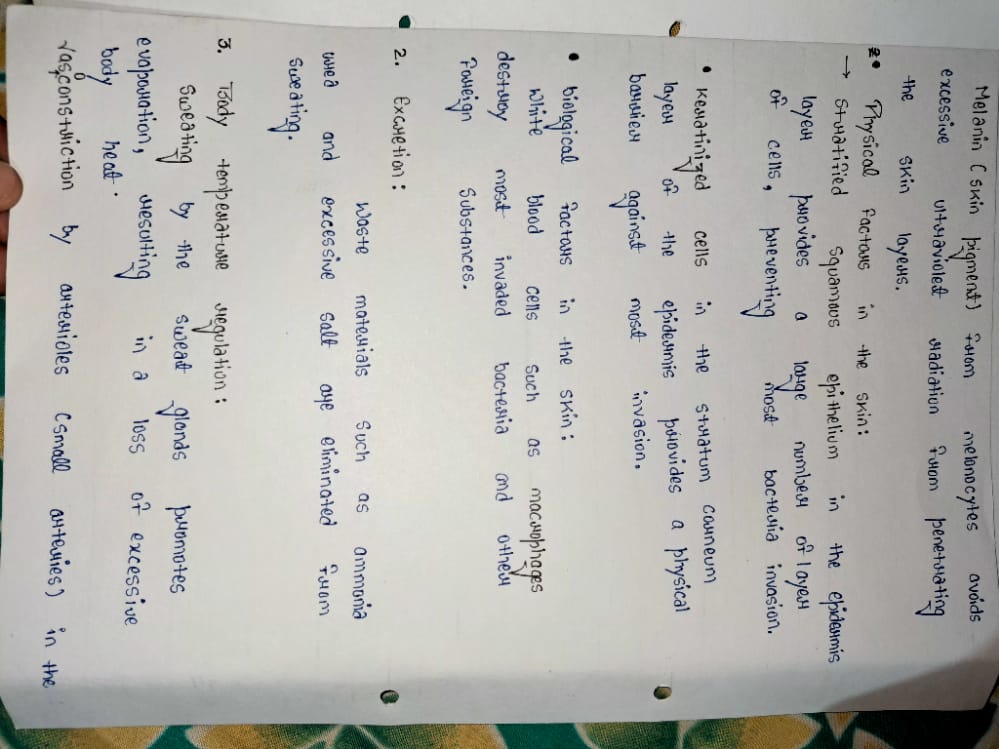 Melanin (skin pigment) from melonocytes avoids
excessive ultraviolet radiation from penetrating
the skin layers.
2• Physical factors in the skin:
→ Stratified Squamous epithelium in the epidermis
layer provides a large number of layer
of cells, preventing most bacteria invasion.
• Keratinized cells in the stratum corneum
layer of the epidermis provides a physical
barrier against most invasion.
• biological factors in the skin:
White blood cells such as macrophages
destroy most invaded bacteria and other
foreign Substances.
2. Excretion:
Waste materials Such as ammonia
urea and excessive salt are eliminated from
Sweating.
3. Tody temperature regulation:
Sweating by the sweat glands promotes
evaporation, resulting in a loss of excessive
body heat.
Vasoconstriction by arterioles (small arteries) in the